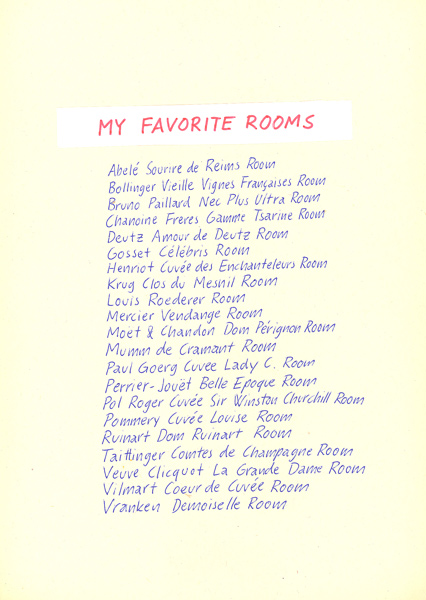 MY FAVORITE ROOMS
Abelé Sourire de Reims Room
Bollinger Vieille Vignes Françaises Room
Bruno Paillard Nec Plus Ultra Room
Chanoine Freres Gamme Tsarine Room
Deutz Amour de Deutz Room
Gosset Célébris Room
Henriot Cuvée des Enchanteleurs Room
Krug Clos du Mesnil Room
Louis Roederer Room
Mercier Vendange Room
Moët & Chandon Dom Pérignon Room
Mumm de Cramant Room
Paul Goerg Cuvee Lady C. Room
Perrier-Jouët Belle Epoque Room
Pol Roger Cuvée Sir Winston Churchill Room
Pommery Cuvée Louise Room
Ruinart Dom Ruinart Room
Taittinger Comtes de Champagne Room
Veuve Clicquot La Grande Dame Room
Vilmart Coeur de Cuvée Room
Vranken Demoiselle Room